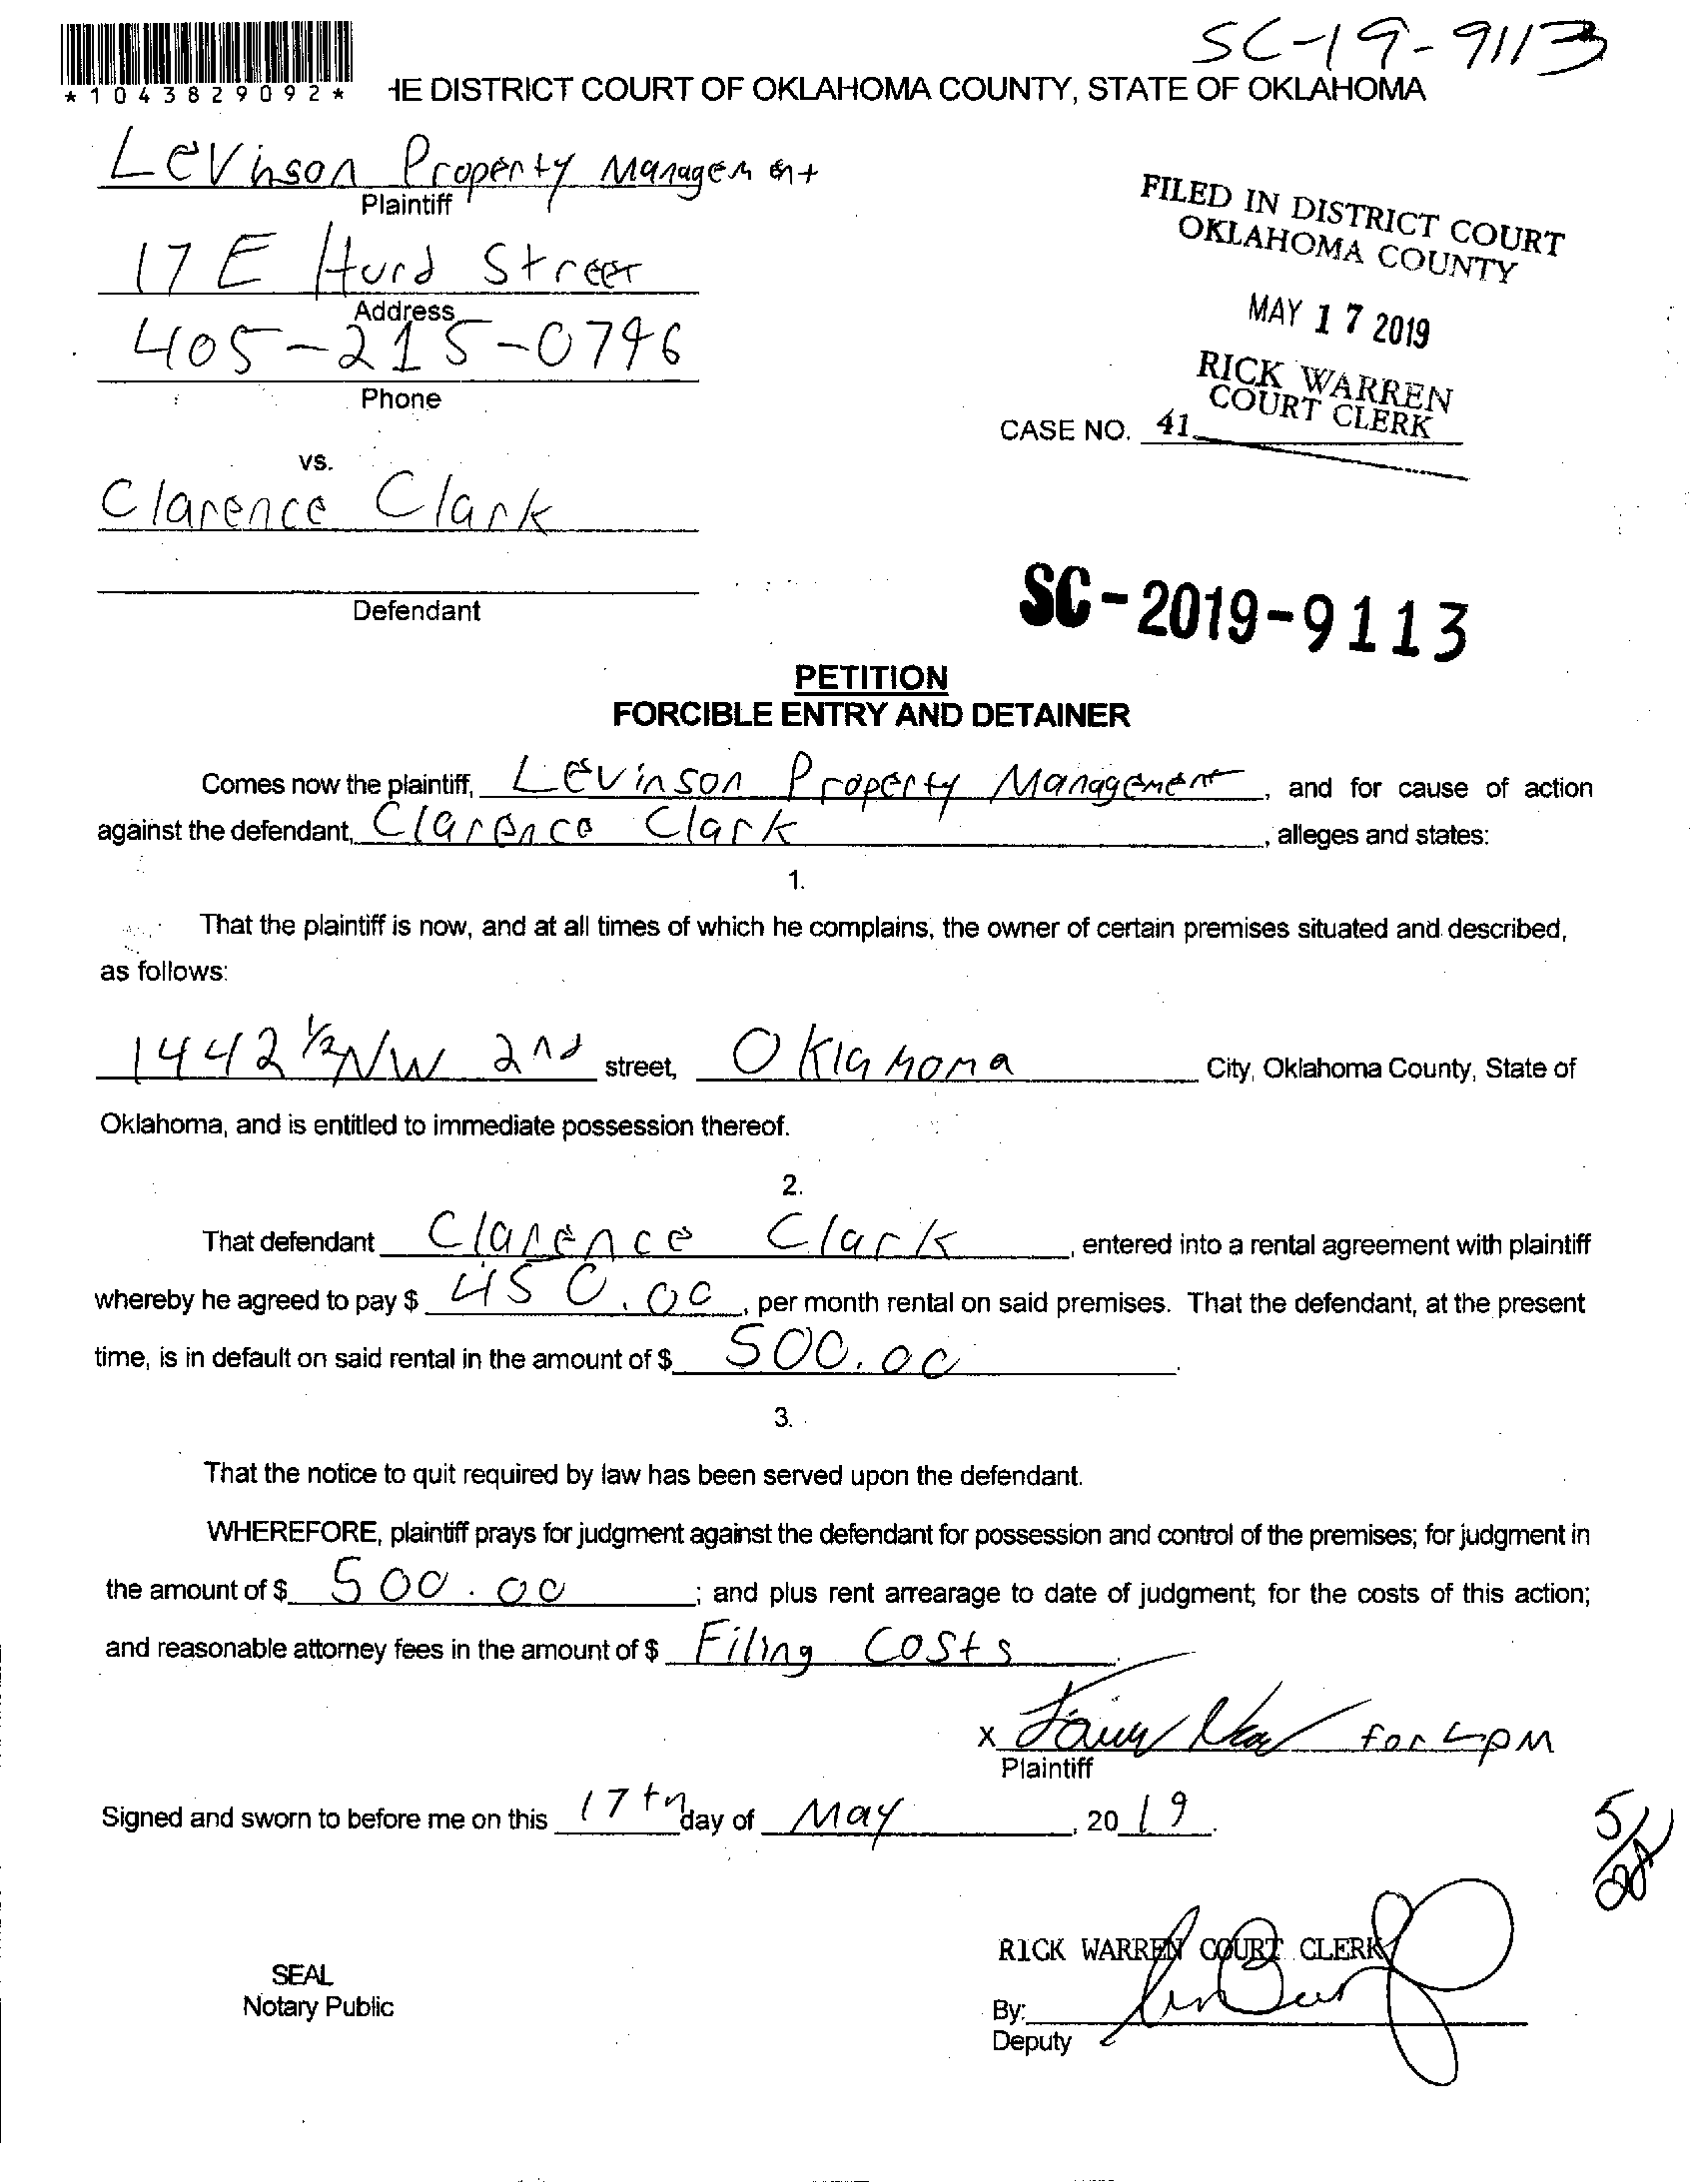 SC-19-9113
*1043829092*
HE DISTRICT COURT OF OKLAHOMA COUNTY, STATE OF OKLAHOMA
Levinson Property Management
Plaintiff
17 E Hurd Street
Address
405-215-0746
Phone
FILED IN DISTRICT COURT
OKLAHOMA COUNTY
MAY 17 2019
RICK WARREN
COURT CLERK
CASE NO. 41
vs.
Clarence Clark
Defendant
SC-2019-9113
PETITION
FORCIBLE ENTRY AND DETAINER
Comes now the plaintiff, Levinson Property Management, and for cause of action
against the defendant, Clarence Clark, alleges and states:
1.
That the plaintiff is now, and at all times of which he complains, the owner of certain premises situated and described,
as follows:
1442 1/2 NW 2nd street, Oklahoma City, Oklahoma County, State of
Oklahoma, and is entitled to immediate possession thereof.
2.
That defendant Clarence Clark, entered into a rental agreement with plaintiff
whereby he agreed to pay $ 450.00, per month rental on said premises. That the defendant, at the present
time, is in default on said rental in the amount of $ 500.00.
3.
That the notice to quit required by law has been served upon the defendant.
WHEREFORE, plaintiff prays for judgment against the defendant for possession and control of the premises; for judgment in
the amount of $ 500.00; and plus rent arrearage to date of judgment; for the costs of this action;
and reasonable attorney fees in the amount of $ Filing Costs.
X for LPM
Plaintiff
Signed and sworn to before me on this 17th day of May, 2019.
5/28
RICK WARREN COURT CLERK
SEAL
Notary Public
By:
Deputy